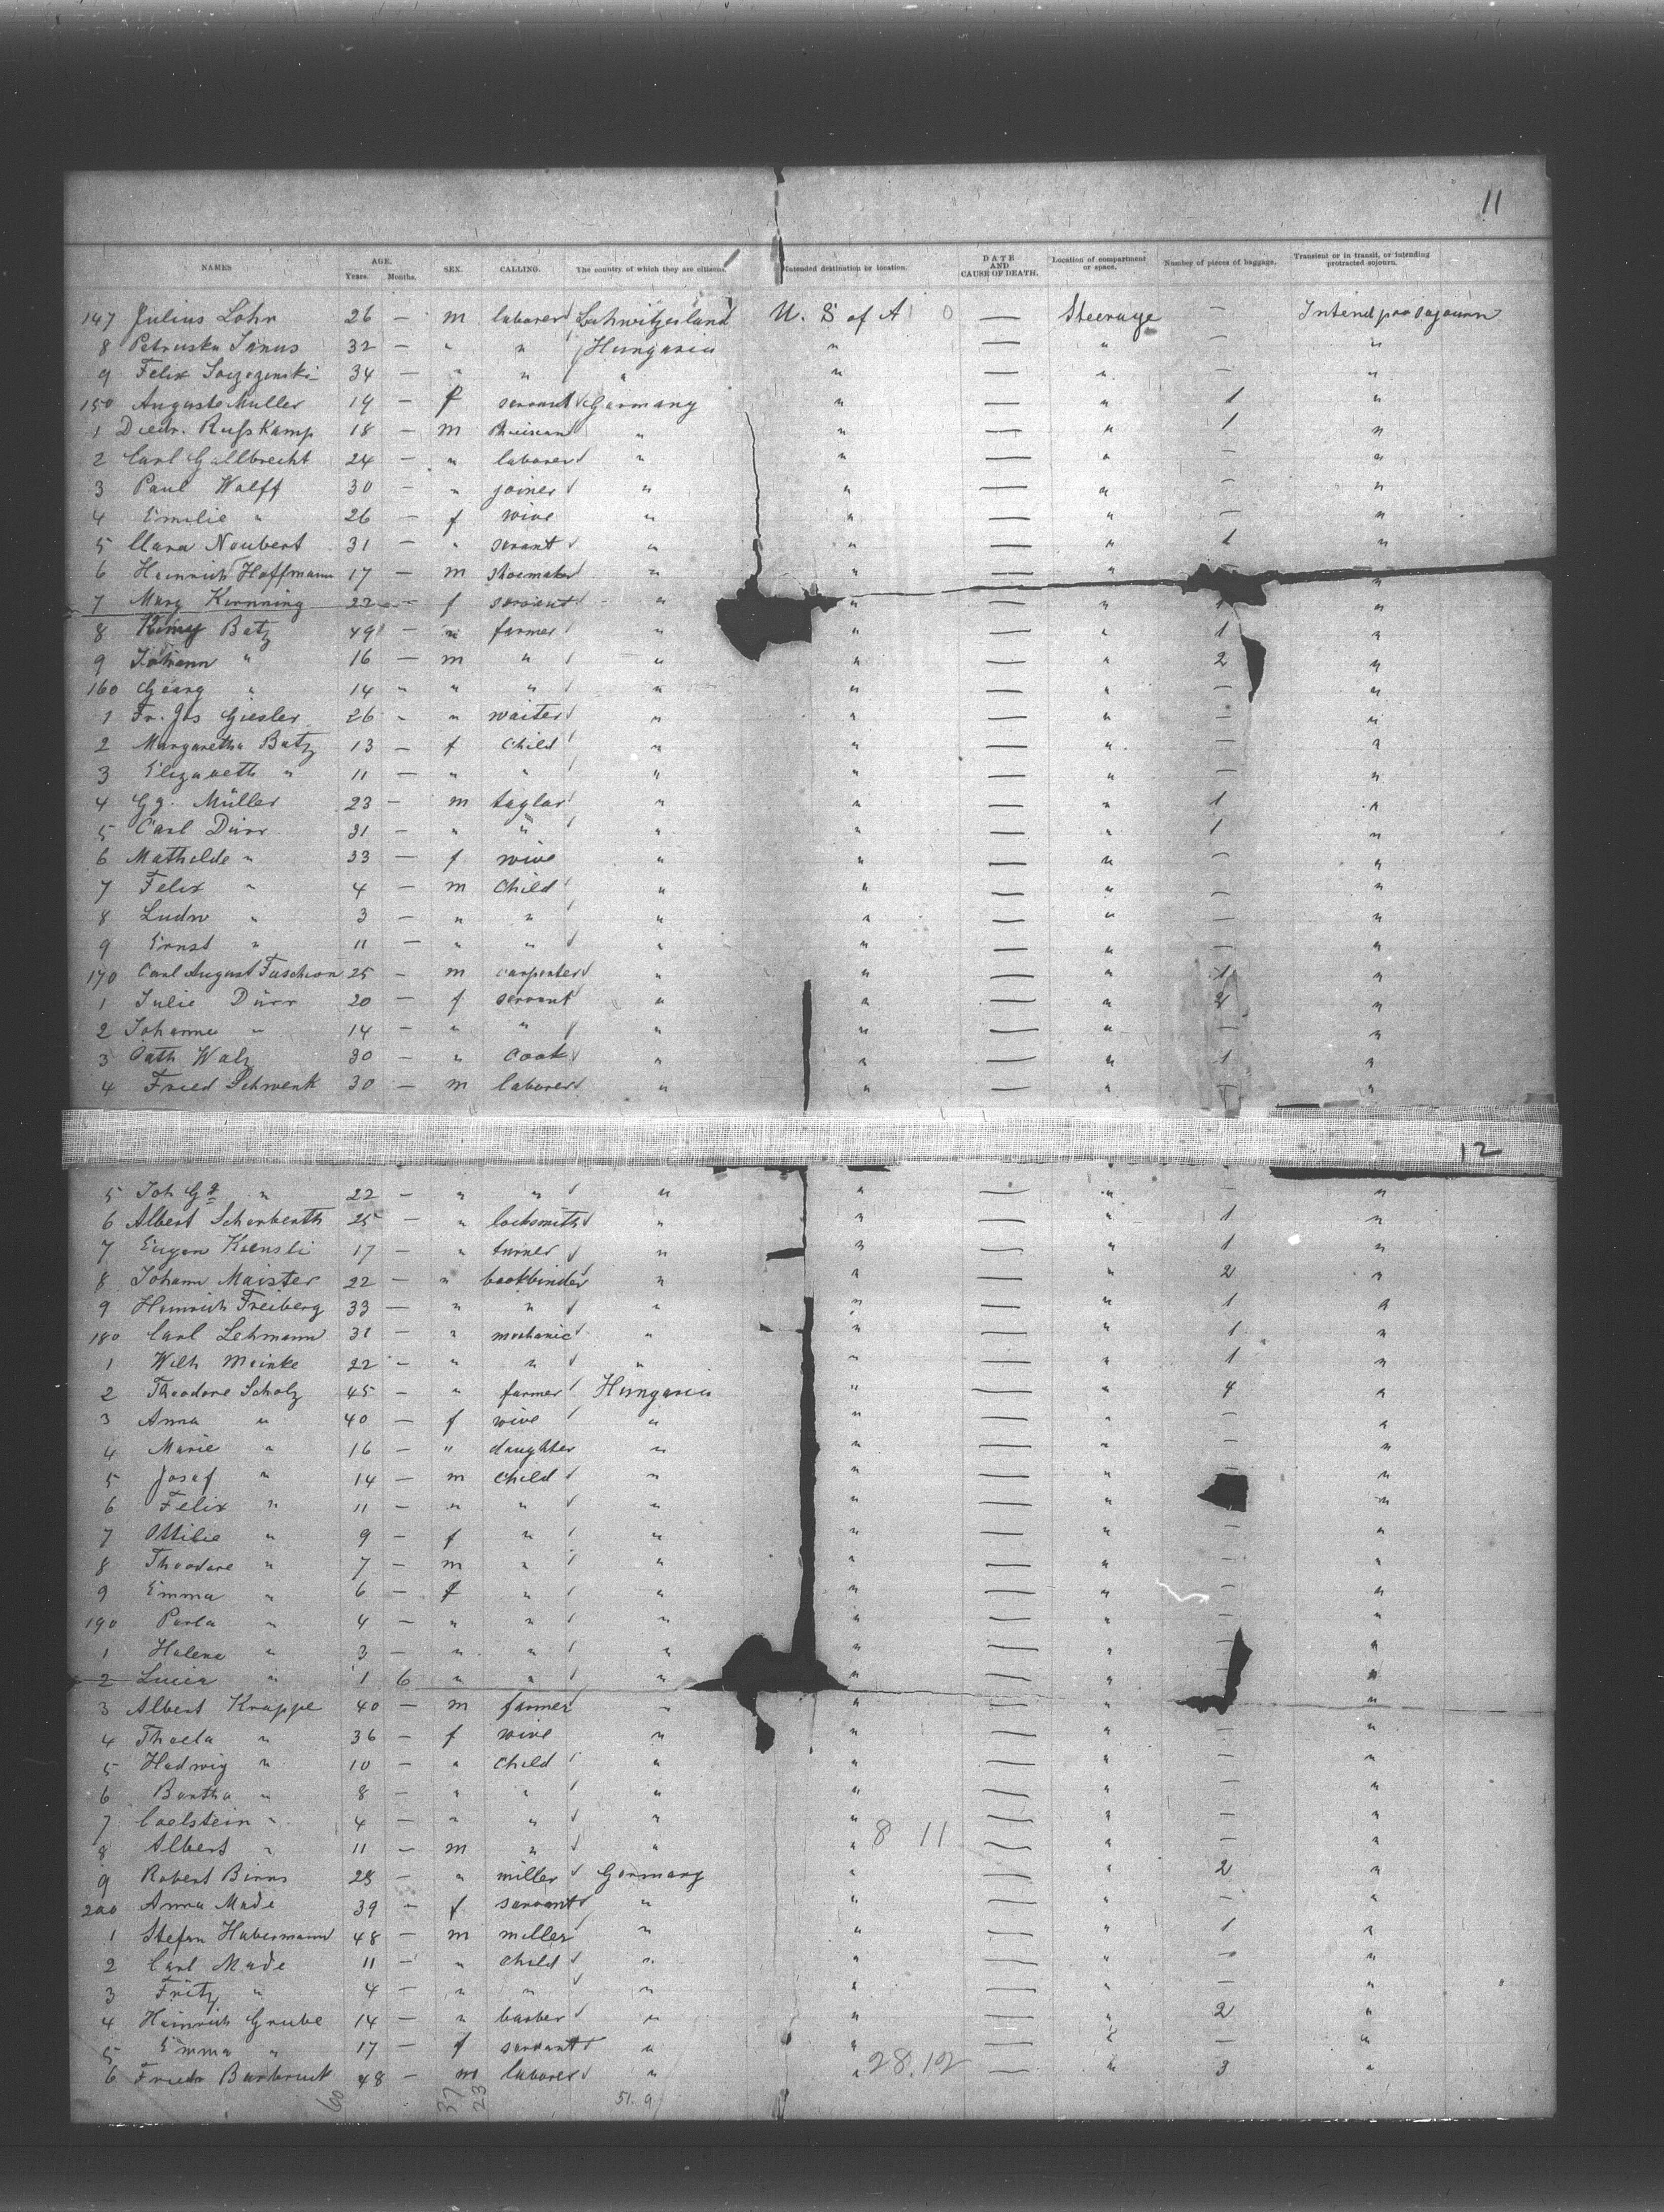 11
NAMES AGE. Years. Months. SEX. CALLING. The country of which they are citizens. Intended destination or location. DATE AND CAUSE OF DEATH. Location of compartment or space. Number of pieces of baggage. Transient or in transit, or intending protracted sojourn.
147 Julius Lohr 26 — m laborer Schwitzerland U. S of A 0 — Steerage — Intend pro sojourn
8 Petruska Janus 32 — " " Hungaria " — " — "
9 Felix 34 — " " " " — " — "
150 Auguste Muller 19 — f servant Germany " — " 1 "
1 Diedr. Rufskamp 18 — m " " — " 1 "
2 Carl Gallbrecht 24 — " laborer " " — " — "
3 Paul Wolff 30 — " joiner " " — " — "
4 Emilie " 26 — f wive " " — " — "
5 Clara Naubert 31 — " servant " " — " 1 "
6 Heinrich Hoffmann 17 — m shoemaker " " — " "
7 Marg Kernning 22 — f servant " " — " 1 "
8 Betz 49 — " farmer " " — " 1 "
9 Johann " 16 — m " " " — " 2 "
160 Georg " 14 " " " " " — " — "
1 Fr. Jos Giesler 26 " " waiter " " — " — "
2 Margaretha Batz 13 — f child " " — " — "
3 Elizabeth " 11 — " " " " — " — "
4 Gg. Müller 23 — m taylor " " — " 1 "
5 Carl Dürr 31 — " " " " — " 1 "
6 Mathilde " 33 — f wive " " — " — "
7 Felix " 4 — m child " " — " — "
8 Ludw " 3 — " " " " — " — "
9 Ernst " 11 — " " " " — " — "
170 Carl August Faschion 25 — m carpenter " " — " 1 "
1 Julie Dürr 20 — f servant " " — " 2 "
2 Johanna " 14 — " " " " — " — "
3 Cath Walz 30 — " cook " " — " 1 "
4 Fried Schwenk 30 — m laborer " " — " — "
12
5 Joh Gg " 22 — " " " " — " — "
6 Albert Scherberth 25 — " locksmith " " — " 1 "
7 Eugen Kiensli 17 — " turner " " — " 1 "
8 Johann Maister 22 — " bookbinder " " — " 2 "
9 Heinrich Freiberg 33 — " " " " — " 1 "
180 Carl Lehmann 31 — " mechanic " " — " 1 "
1 Wilh Meinke 22 — " " " " — " 1 "
2 Theodore Scholz 45 — " farmer Hungaria " — " 4 "
3 Anna " 40 — f wive " " — " — "
4 Marie " 16 — " daughter " " — " — "
5 Josef " 14 — m child " " — " — "
6 Felix " 11 — " " " " — " "
7 Ottilie " 9 — f " " " — " — "
8 Theodore " 7 — m " " " — " — "
9 Emma " 6 — f " " " — " — "
190 Perla " 4 — " " " " — " — "
1 Helene " 3 — " " " " — " — "
2 Lucia " 1 6 " " " " — " — "
3 Albert Krappe 40 — m farmer " " — " "
4 Thecla " 36 — f wive " " — " — "
5 Hedwig " 10 — " child " " — " — "
6 Bertha " 8 — " " " " — " — "
7 Caelstein " 4 — " " " " — " — "
8 11
8 Albert " 11 — m " " " — " — "
9 Robert Birns 28 — " miller Germany " — " 2 "
200 Anna Made 39 — f servant " " — " — "
1 Stefan Habermann 48 — m miller " " — " 1 "
2 Carl Made 11 — " child " " — " — "
3 Fritz " 4 — " " " " — " — "
4 Heinrich Grube 14 — " barber " " — " 2 "
5 Emma " 17 — f servant " " — " — "
28.12
6 Friedr Barbruck 48 — m laborer " " — " 3 "
60 37 23 51. 9